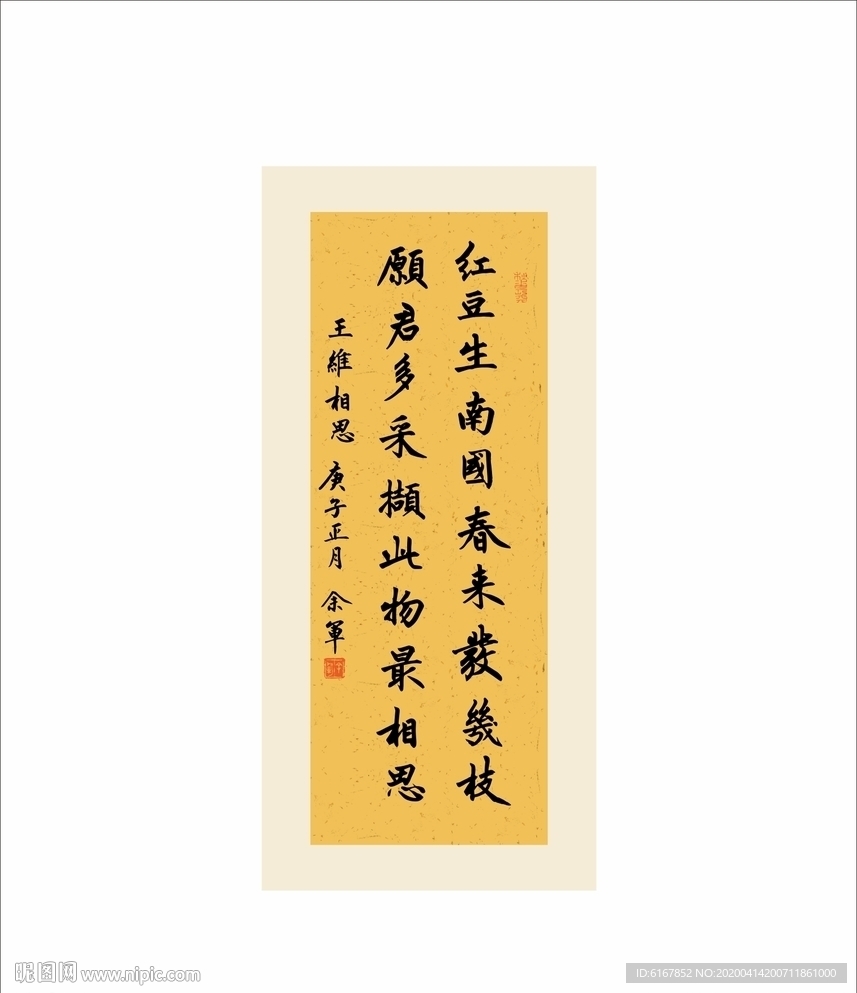 红豆生南國春来發幾枝
願君多采擷此物最相思
王維相思 庚子正月 余軍
昵图网 www.nipic.com
ID:6167852 NO:20200414200711861000